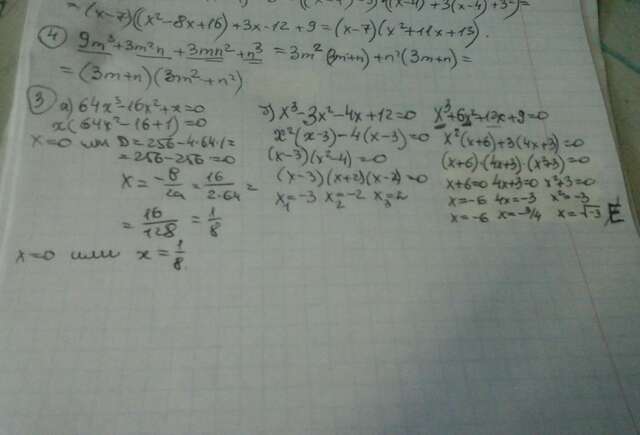 = (x-7)((x²-8x+16)+3x-12+9 = (x-7)(x²+11x+13).
④ 9m³+3m²n+3mn²+n³ = 3m²(3m+n)+n²(3m+n)=
= (3m+n)(3m²+n²)
③ а) 64x³-16x²+x=0
x(64x²-16+1)=0
x=0 или D=256-4·64·1=
=256-256=0
x = -8/2a = 16/2·64 =
= 16/128 = 1/8
x=0 или x = 1/8
б) x³-3x²-4x+12=0
x²(x-3)-4(x-3)=0
(x-3)(x²-4)=0
(x-3)(x+2)(x-2)=0
x₁=-3 x₂=-2 x₃=2
x³+6x²+12x+9=0
x²(x+6)+3(4x+3)=0
(x+6)·(4x+3)·(x²+3)=0
x+6=0 4x+3=0 x²+3=0
x=-6 4x=-3 x²=-3
x=-6 x=-3/4 x=√-3